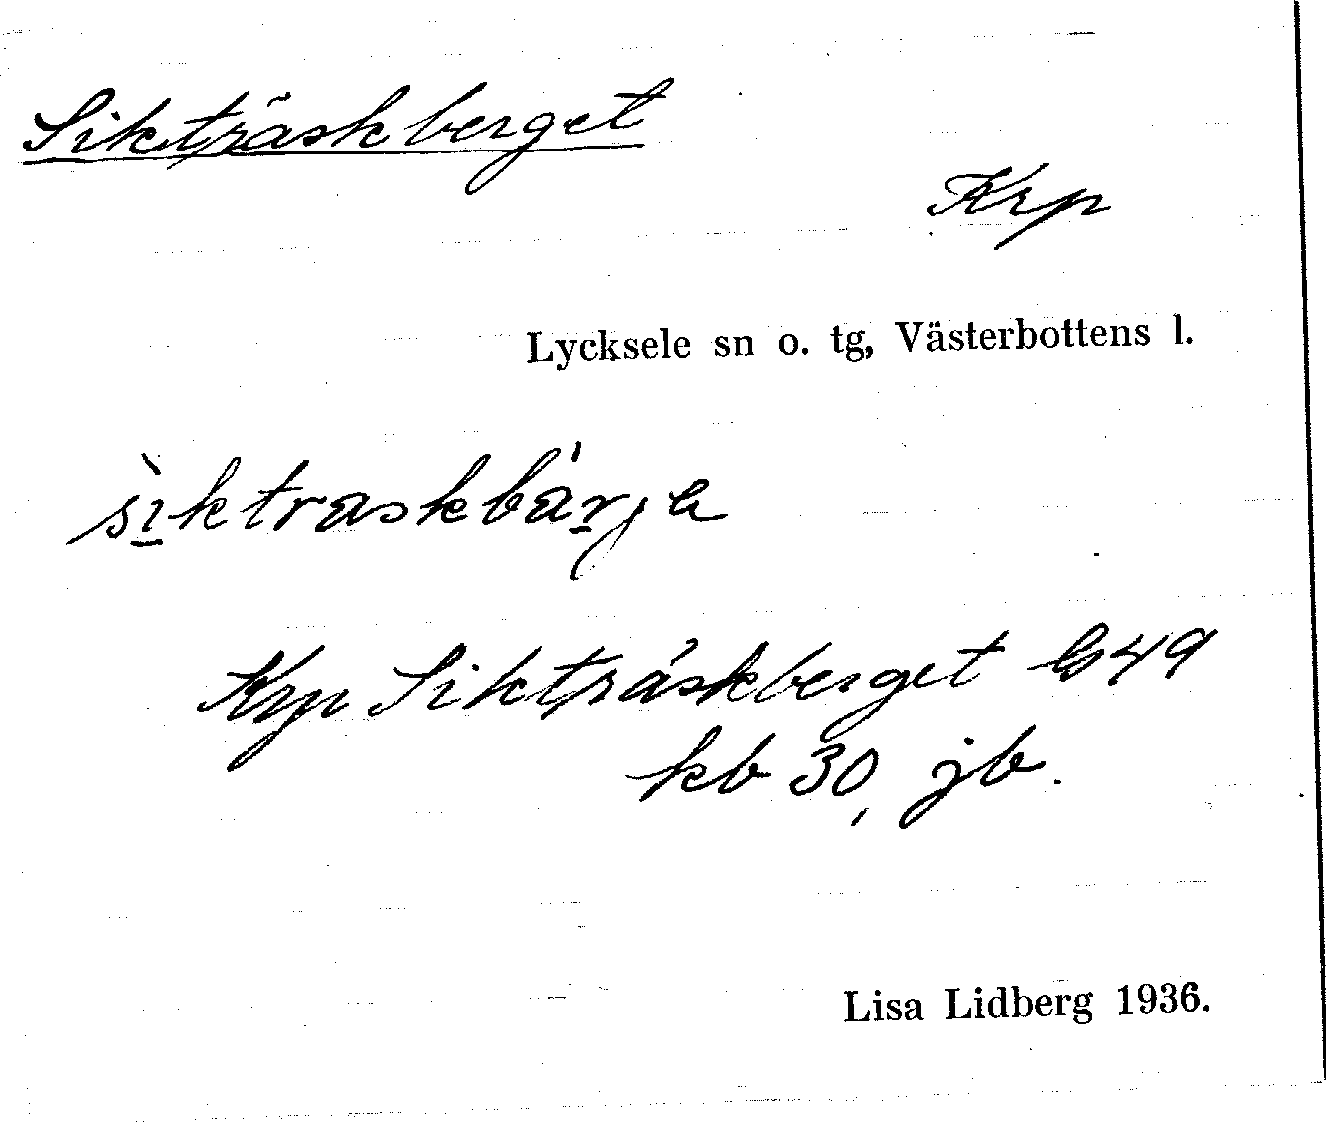 Sikträskberget
Krp
Lycksele sn o. tg, Västerbottens l.
sìktraskbár̲ja
Krp Sikträskberget G49
kb 30, jb.
Lisa Lidberg 1936.